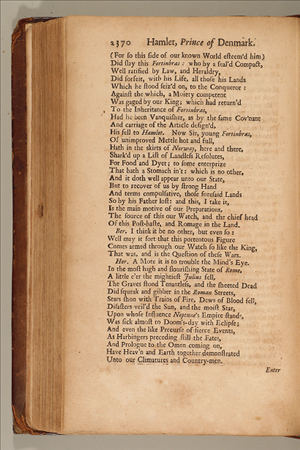 2370 Hamlet, Prince of Denmark.
(For so this side of our known World esteem'd him)
Did slay this Fortinbras: who by a seal'd Compact,
Well ratified by Law, and Heraldry,
Did forfeit, with his Life, all those his Lands
Which he stood seiz'd on, to the Conqueror:
Against the which, a Moiety competent
Was gaged by our King; which had return'd
To the Inheritance of Fortinbras,
Had he been Vanquisht, as by the same Cov'nant
And carriage of the Article design'd,
His fell to Hamlet. Now Sir, young Fortinbras,
Of unimproved Mettle hot and full,
Hath in the skirts of Norway, here and there,
Shark'd up a List of Landless Resolutes,
For Food and Dyet; to some enterprize
That hath a Stomach in't: which is no other,
And it doth well appear unto our State,
But to recover of us by strong Hand
And terms compulsative, those foresaid Lands
So by his Father lost: and this, I take it,
Is the main motive of our Preparations,
The source of this our Watch, and the chief head
Of this Post-haste, and Romage in the Land.
Ber. I think it be no other, but even so:
Well may it sort that this portentous Figure
Comes armed through our Watch so like the King,
That was, and is the Question of these Wars.
Hor. A Mote it is to trouble the Mind's Eye.
In the most high and flourishing State of Rome,
A little e'er the mightiest Julius fell,
The Graves stood Tenantless, and the sheeted Dead
Did squeak and gibber in the Roman Streets,
Stars shon with Trains of Fire, Dews of Blood fell,
Disasters veil'd the Sun, and the moist Star,
Upon whose Influence Neptune's Empire stands,
Was sick almost to Doom's-day with Eclipse;
And even the like Precurse of fierce Events,
As Harbingers preceding still the Fates,
And Prologue to the Omen coming on,
Have Heav'n and Earth together demonstrated
Unto our Climatures and Country-men.
Enter